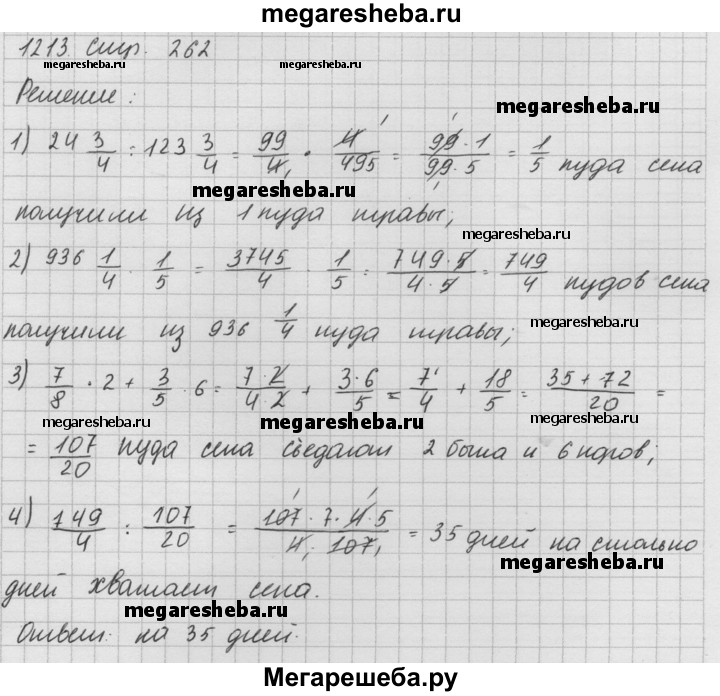 megaresheba.ru
1213. Стр. 262
megaresheba.ru megaresheba.ru
Решение:
megaresheba.ru
1) 24 3/4 : 123 3/4 = 99/4 · 4/495 = 99·1/99·5 = 1/5 пуда сена
megaresheba.ru
получили из 1 пуда травы;
megaresheba.ru
2) 936 1/4 · 1/5 = 3745/4 · 1/5 = 749·5/4·5 = 749/4 пудов сена
получили из 936 1/4 пуда травы;
megaresheba.ru
3) 7/8 · 2 + 3/5 · 6 = 7·2/4·2 + 3·6/5 = 7/4 + 18/5 = 35+72/20 =
megaresheba.ru megaresheba.ru
= 107/20 пуда сена съедают 2 быка и 6 коров;
megaresheba.ru
4) 749/4 : 107/20 = 107·7·4·5/4·107 = 35 дней на столько
megaresheba.ru
дней хватает сена.
megaresheba.ru
Ответ: на 35 дней.
megaresheba.ru
Мегарешеба.ру